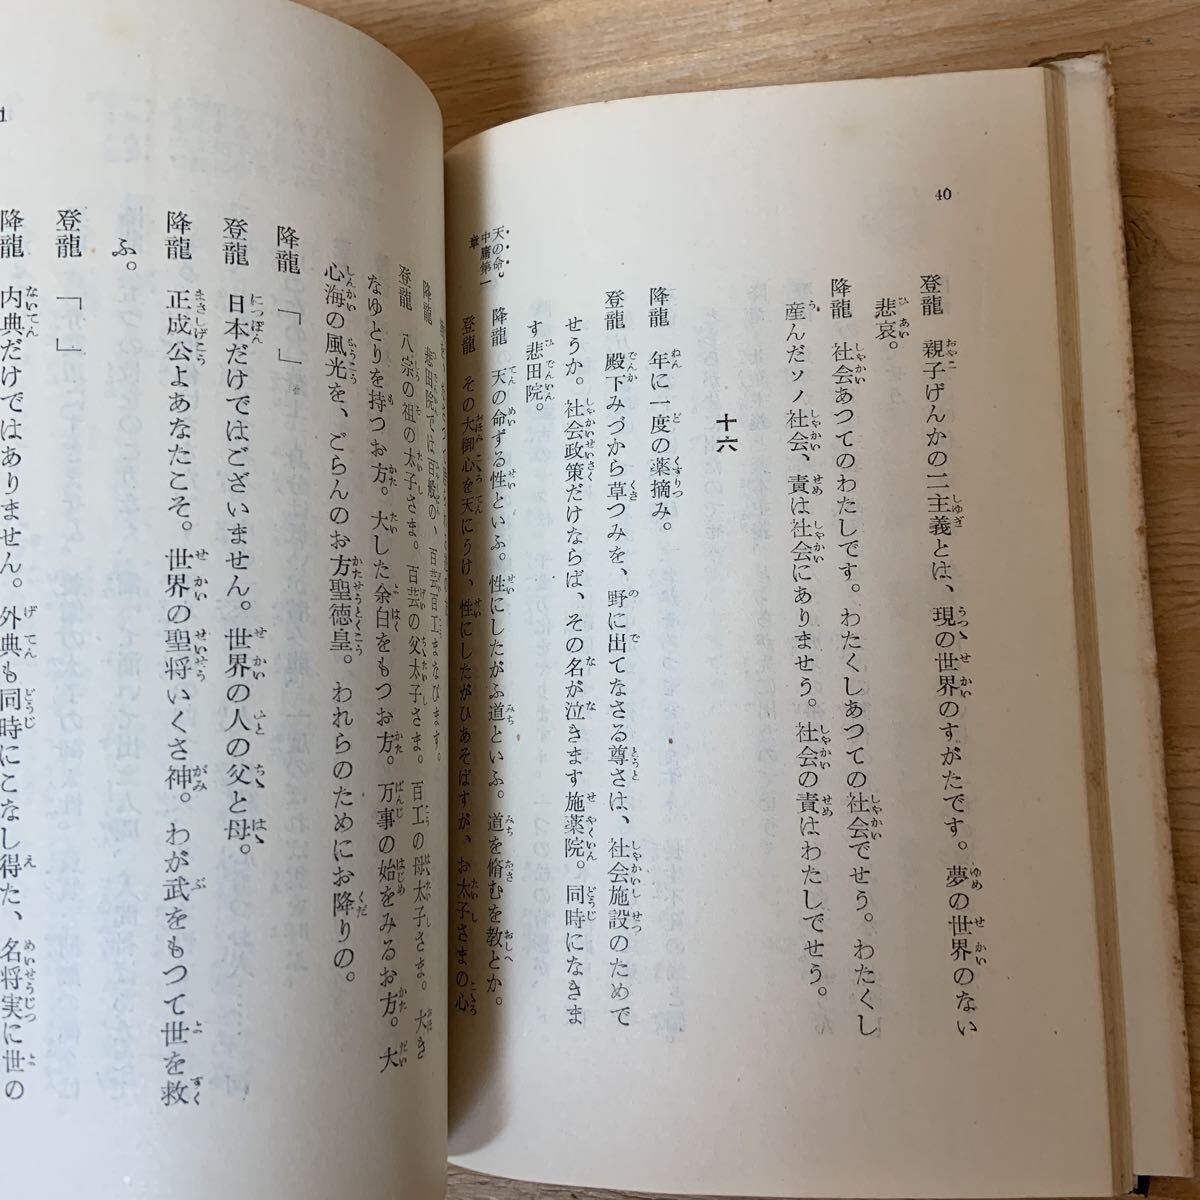 40
登龍　親子げんかの二主義とは、現の世界のすがたです。夢の世界のない
悲哀。
降龍　社会あつてのわたしです。わたくしあつての社会でせう。わたくし
産んだソノ社会、責は社会にありませう。社会の責はわたしでせう。
十六
降龍　年に一度の薬摘み。
登龍　殿下みづから草つみを、野に出てなさる尊さは、社会施設のためで
せうか。社会政策だけならば、その名が泣きます施薬院。同時になきま
す悲田院。
天の命。
中庸第一
章
降龍　天の命ずる性といふ。性にしたがふ道といふ。道を脩むを教とか。
登龍　その大御心を天にうけ、性にしたがひあそばすが、お太子さまの心
降龍　悲田院では百般の、百芸百工まなびます。
登龍　八宗の祖の太子さま。百芸の父太子さま。百工の母太子さま。大き
なゆとりを持つお方。大した余白をもつお方。万事の始をみるお方。大
心海の風光を、ごらんのお方聖徳皇。われらのためにお降りの。
降龍　「　」
登龍　日本だけではございません。世界の人の父と母。
降龍　正成公よあなたこそ。世界の聖将いくさ神。わが武をもつて世を救
ふ。
登龍　「　」
降龍　内典だけではありません。外典も同時にこなし得た、名将実に世の